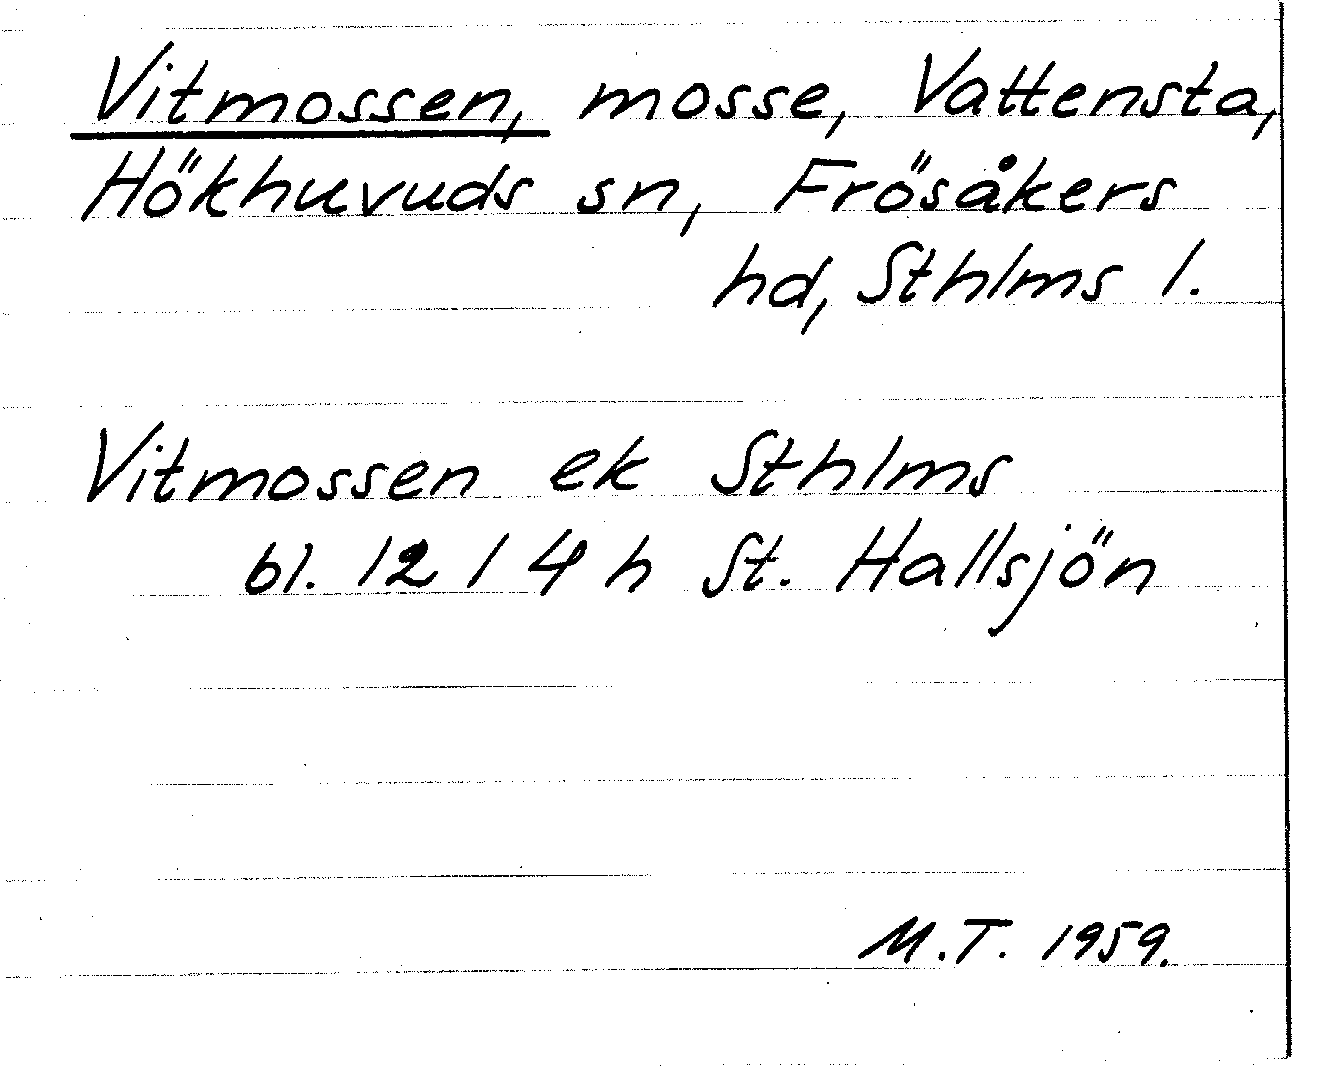 Vitmossen, mosse, Vattensta,
Hökhuvuds sn, Frösåkers
hd, Sthlms l.
Vitmossen ek Sthlms
bl. 12 I 4 h St. Hallsjön
M.T. 1959.